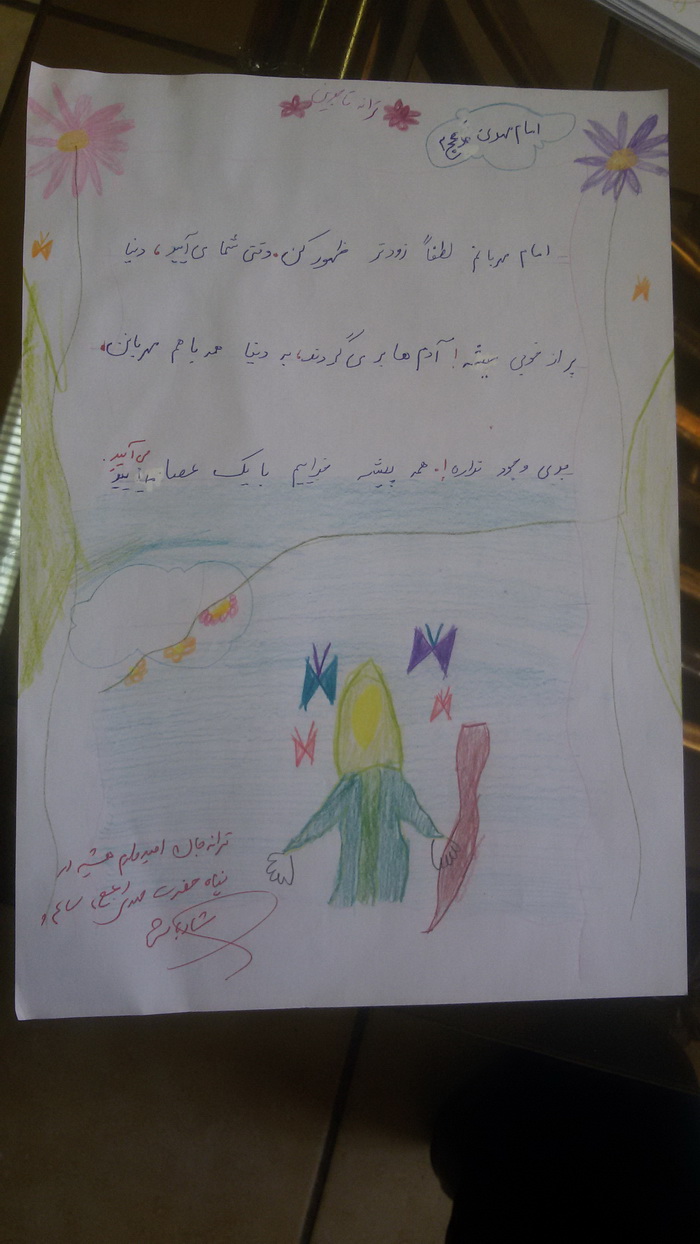 ترانه
امام مهدی
امام مهربانم لطفاً زودتر ظهور کن. وقتی شما می‌آیید، دنیا
پر از خوبی میشه! آدم ها بر می‌گردند، به دنیا همه با هم مهربانن.
بدی وجود نداره! همه پیش خداییم با یک عصا می‌آیید.
ترانه جان امیدوارم همیشه در
پناه حضرت مهدی (عج) سالم و
شاد باشی